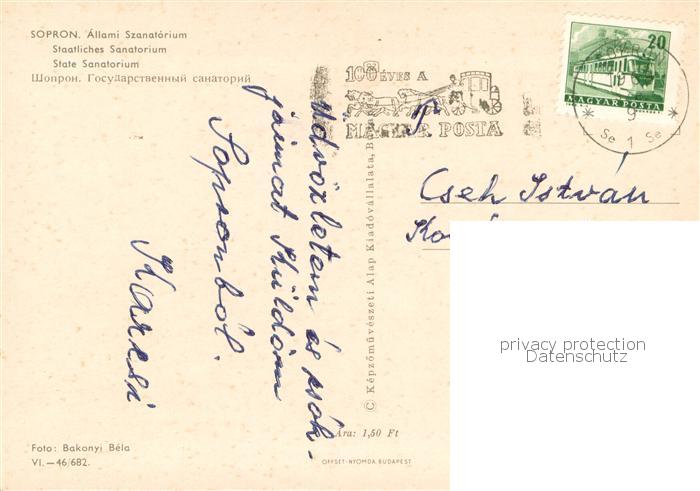 SOPRON. Állami Szanatórium
Staatliches Sanatorium
State Sanatorium
Шопрон. Государственный санаторий
100 ÉVES A
MAGYAR POSTA
20
MAGYAR POSTA
9
Se 1 Se
Üdvözletem és csók-
jaimat küldöm
Sopronból.
Karcsi
Cseh István
© Képzőművészeti Alap Kiadóvállalata, B
privacy protection
Datenschutz
Ára: 1,50 Ft
Foto: Bakonyi Béla
VI.—46/682.
OFFSET-NYOMDA, BUDAPEST